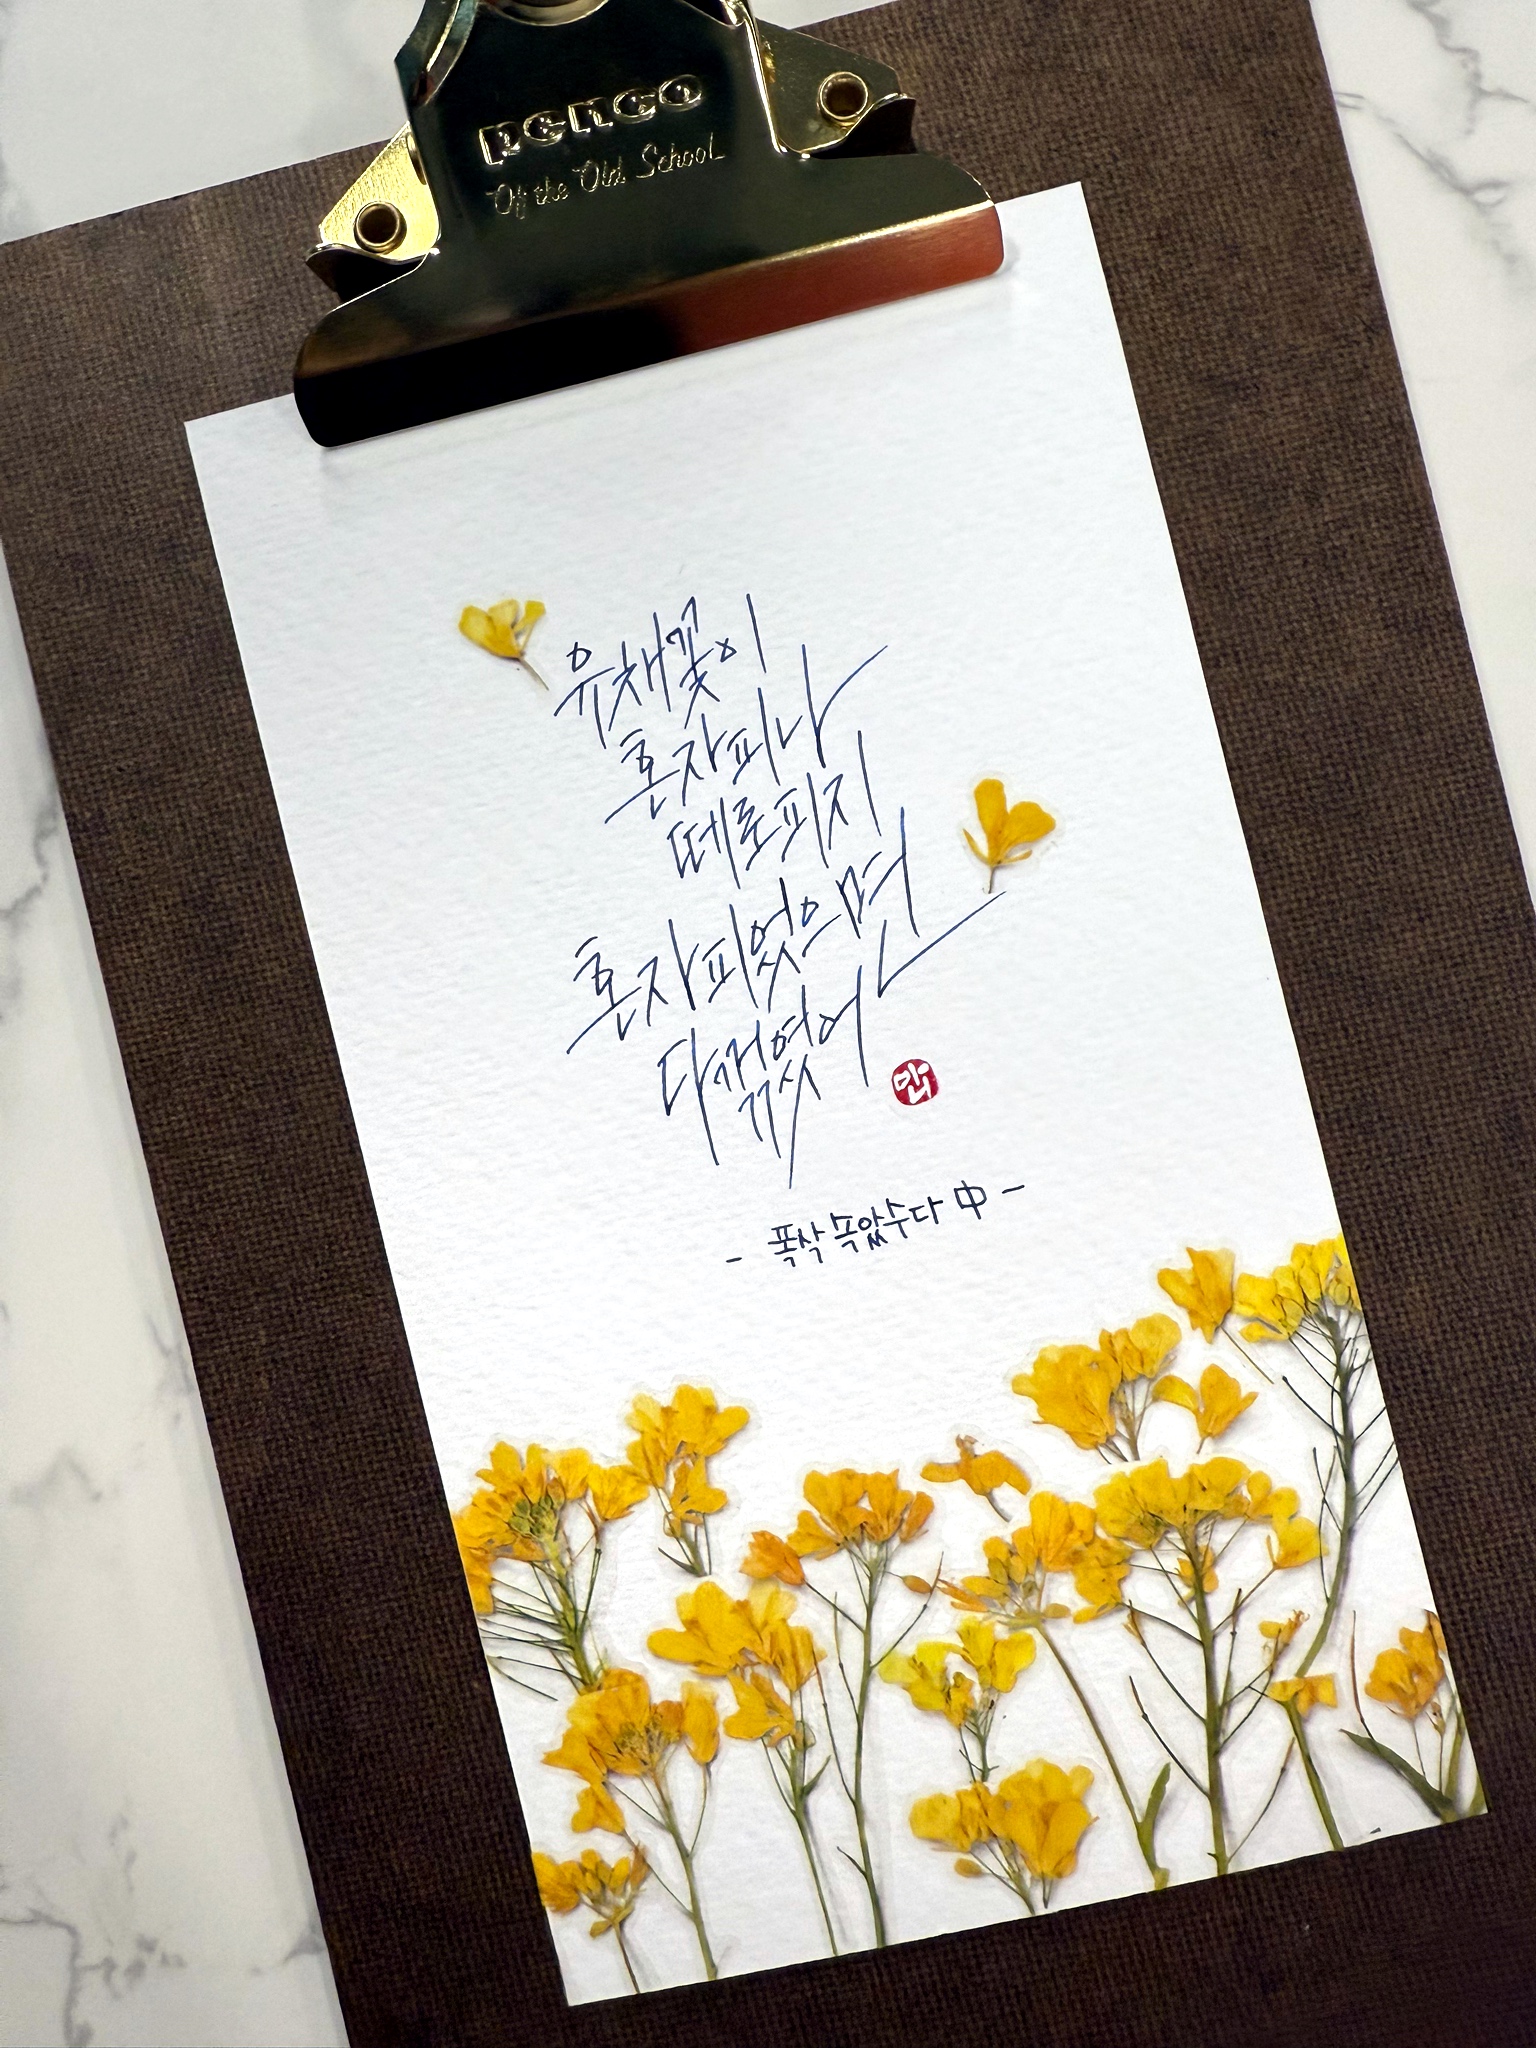 penco
Of the Old School
유채꽃이
혼자 피나
떼로 피지
혼자 피었으면
다 꺾였어
- 폭싹 속았수다 中 -